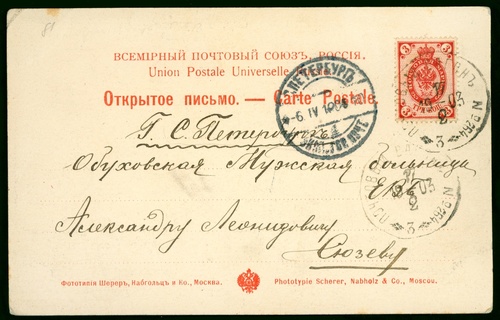 ВСЕМІРНЫЙ ПОЧТОВЫЙ СОЮЗЪ, РОССІЯ.
Union Postale Universelle. Russie.
Открытое письмо. — Carte Postale.
3 3
С.ПЕТЕРБУРГЪ
6 IV 1903
Г. С. Петербургъ
Обуховская Мужская больница
Александру Леонидовичу
Сюзеву
Фототипія Шереръ, Набгольцъ и Ко., Москва.
Phototypie Scherer, Nabholz & Co., Moscou.